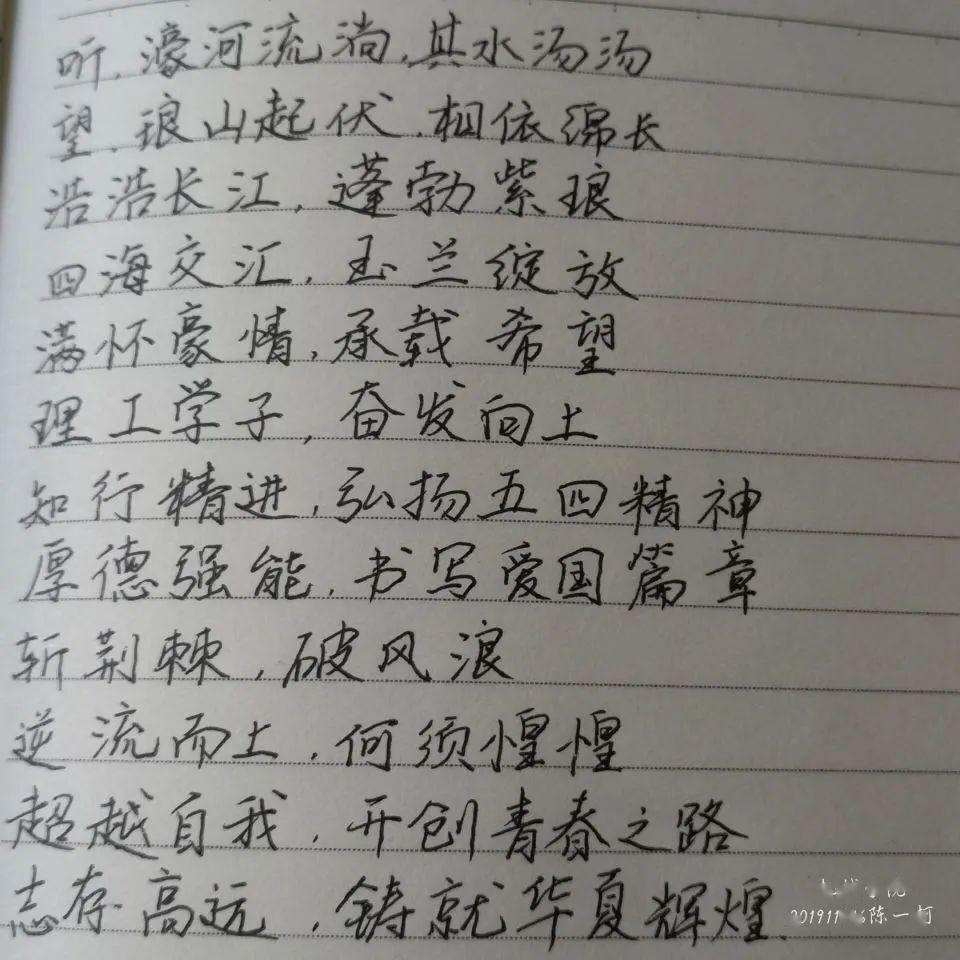 听,濠河流淌,其水汤汤
望,琅山起伏,相依绵长
浩浩长江,蓬勃紫琅
四海交汇,玉兰绽放
满怀豪情,承载希望
理工学子,奋发向上
知行精进,弘扬五四精神
厚德强能,书写爱国篇章
斩荆棘,破风浪
逆流而上,何须惶惶
超越自我,开创青春之路
志存高远,铸就华夏辉煌.
陈一